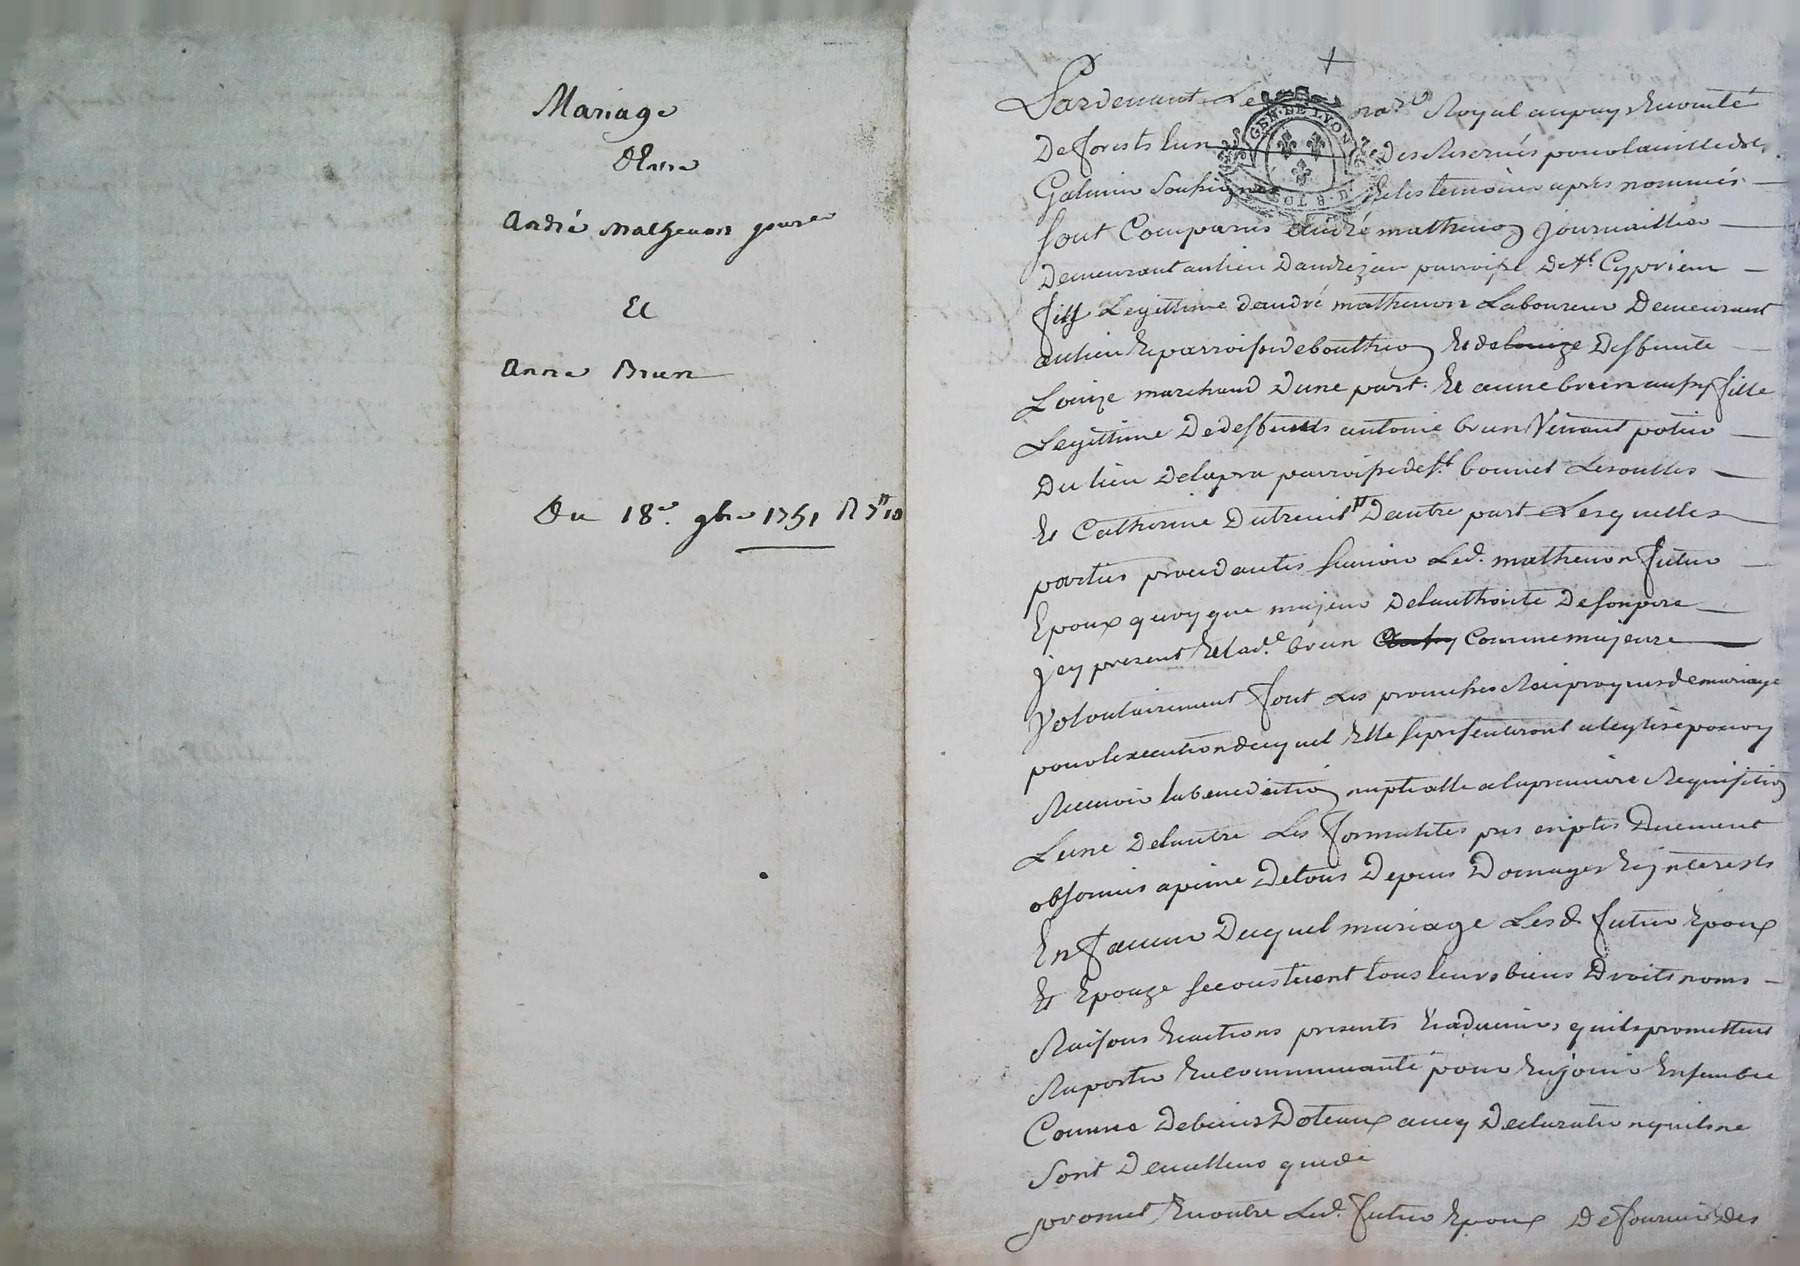 Mariage
Entre
André Mathevon jour.er
Et
Anne Brun
Du 18e. 9bre 1751
Pardevant Le no.re Royal au pays & comté
De forests lun Des Reservés pour la ville de St
Galmier Soussigné & les temoins après nommés
sont Comparus André mathevon journaillier
Demeurant au lieu Dandrezieu parroisse De St. Cyprien
fils Legittime dandré mathevon Laboureur Demeurant
au lieu & parroisse de bouttheon & de louize Deffunte
Louize marchand Dune part. Et anne brun aussy fille
Legittime De deffunts antoine brun vivant potier
Du lieu Delapra parroisse de St. bonnet Lesoulles
& Catherine Dutreuil Dautre part Lesquelles
parties procedantes scavoir Led. mathevon futur
Epoux quoyque majeur De lauthorité De son pere
jcy present & lad.e brun comme majeure
volontairement font Les promesses Reciproques de mariage
pour lexecution duquel Elle se presenteront a leglise pour y
Recevoir la benediction nuptialle a la premiere Requisition
Lune De lautre Les formalités prescriptes Duement
observées a peine De tous Depens Domages & jnterests
En faveur Duquel mariage Lesd futur Epoux
& Epouze se constituent tous leurs biens Droits noms
Raisons & actions presents & advenirs quils promettent
Raporter En communauté pour En jouir Ensemble
Comme De biens Doteaux avec Declaration quils ne
sont De valleur que de
promet En outre Led. futur Epoux De fournir Des
GEN. DE LYON